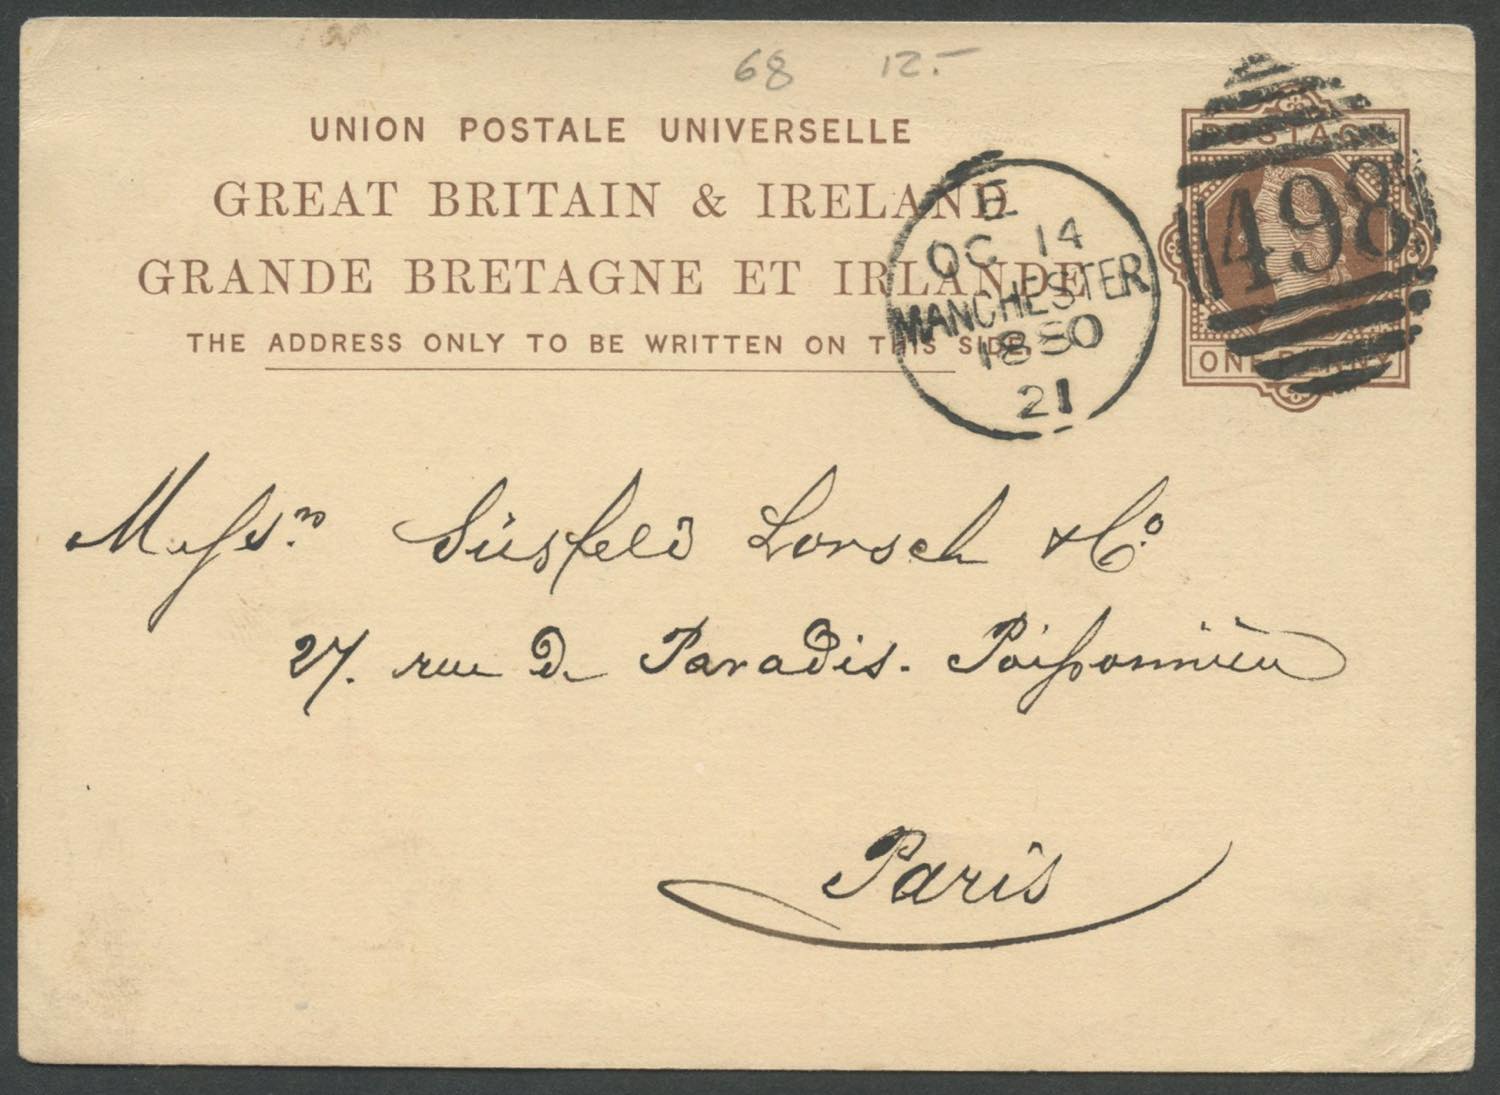 68 12.-
UNION POSTALE UNIVERSELLE
GREAT BRITAIN & IRELAND
GRANDE BRETAGNE ET IRLANDE
THE ADDRESS ONLY TO BE WRITTEN ON THIS SIDE.
E
OC 14
MANCHESTER
1880
21
POSTAGE
498
ONE PENNY
Messrs. Süsfeld Lorsch & Co.
27. rue de Paradis. Poissonnière
Paris